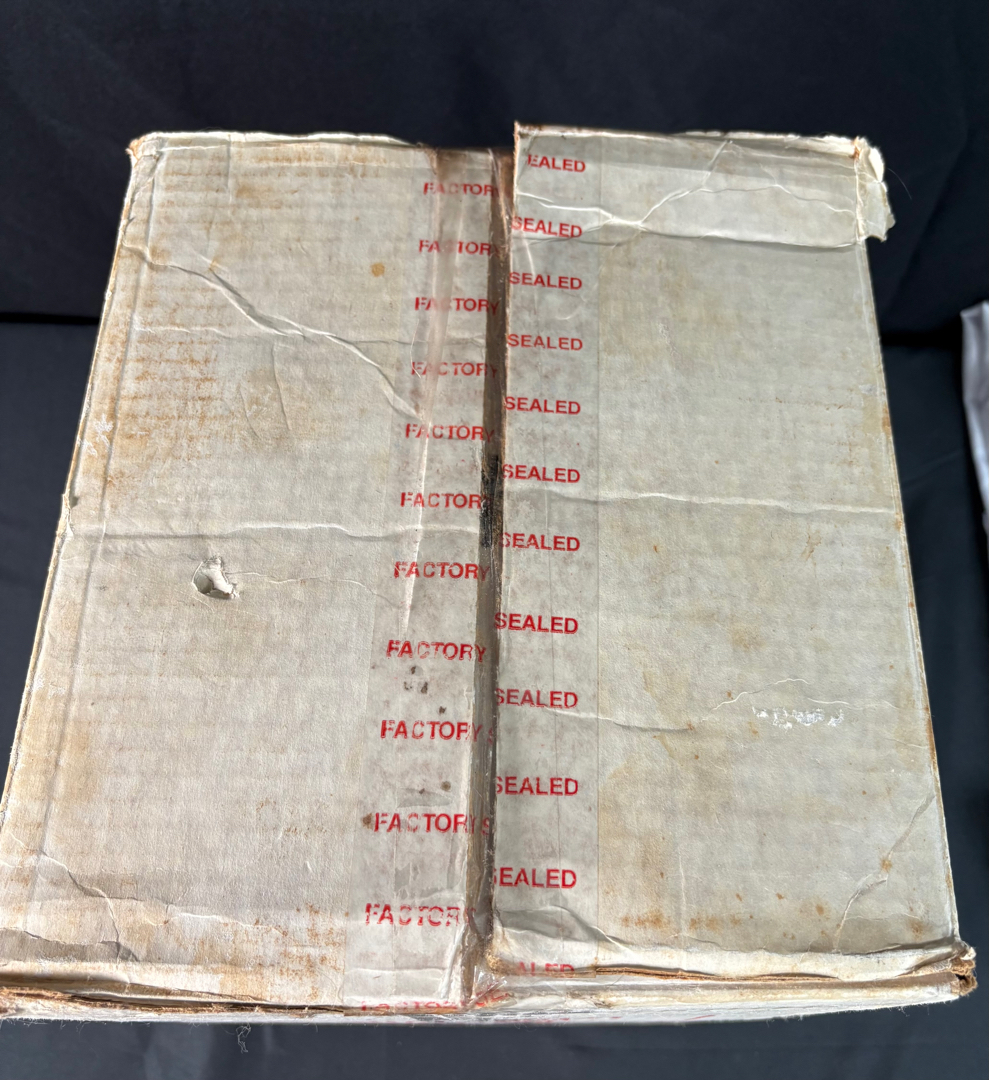 FACTOR EALED
FACTOR SEALED
FACTORY SEALED
FACTORY SEALED
FACTORY SEALED
FACTORY SEALED
FACTORY SEALED
FACTORY SEALED
FACTORY SEALED
FACTORY SEALED
FACTORY SEALED